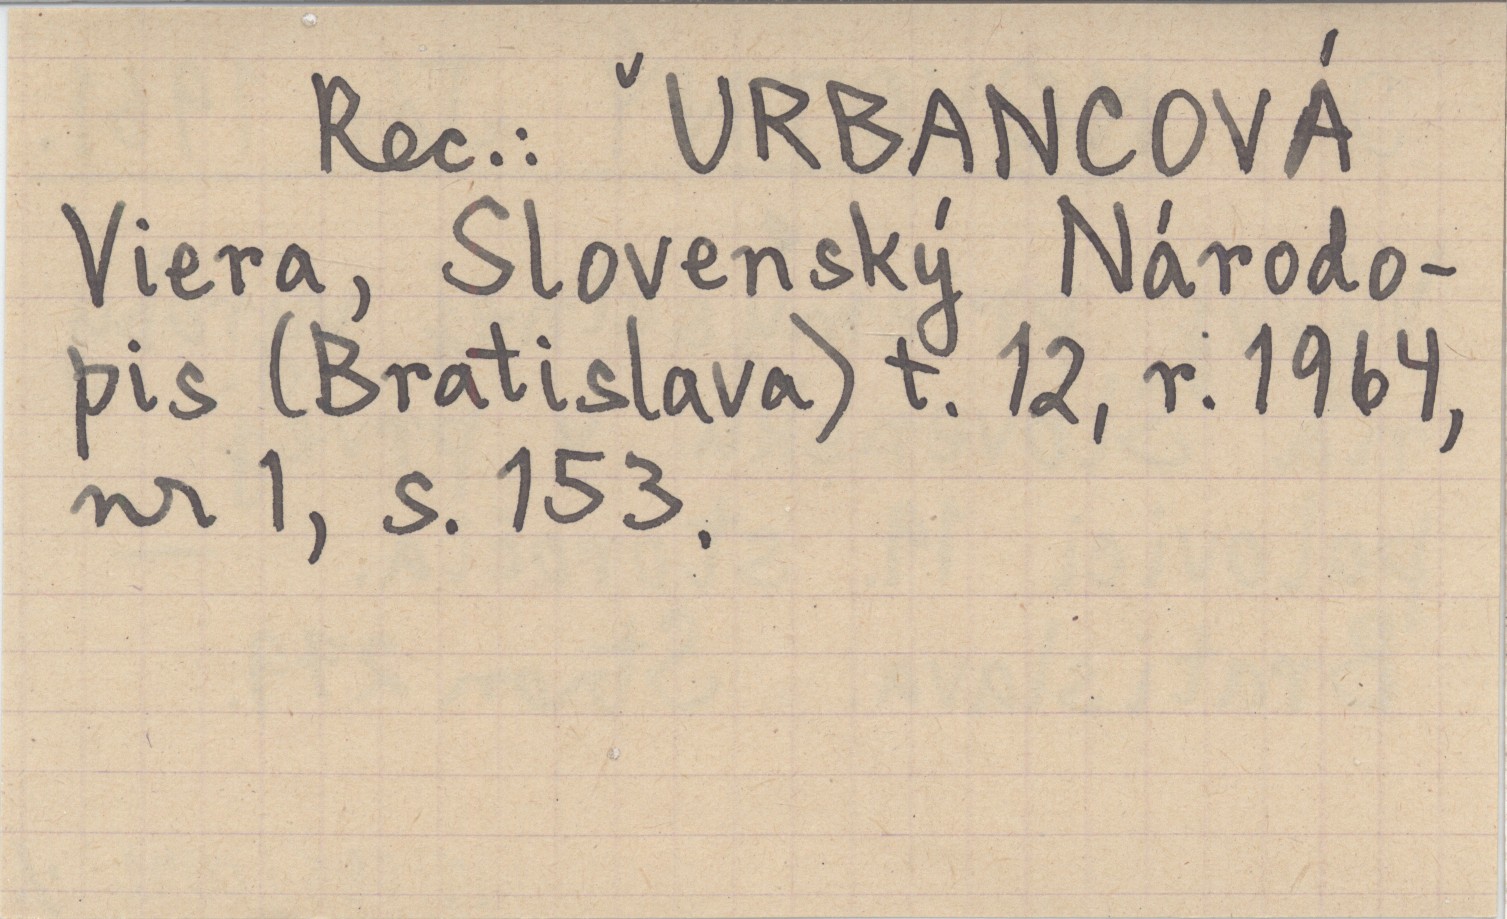 Rec.: ˇURBANCOVÁ
Viera, Slovenský Národo-
pis (Bratislava) t. 12, r. 1964,
nr 1, s. 153.